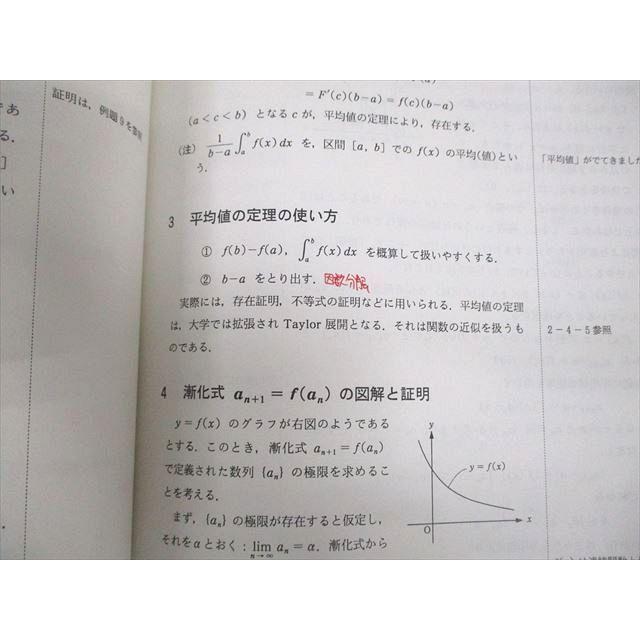 証明は，例題9を参照
= F′(c)(b−a) = f(c)(b−a)
(a＜c＜b) となる c が，平均値の定理により，存在する．
(注) \frac{1}{b−a}∫_a^b f(x)dx を，区間 [a, b] での f(x) の平均(値)とい
う．
「平均値」がでてきました
3 平均値の定理の使い方
① f(b)−f(a)，∫_a^b f(x)dx を概算して扱いやすくする．
② b−a をとり出す．因数分解
実際には，存在証明，不等式の証明などに用いられる．平均値の定理
は，大学では拡張され Taylor 展開となる．それは関数の近似を扱うも
のである．
2−4−5参照
4 漸化式 a_{n+1} = f(a_n) の図解と証明
y=f(x) のグラフが右図のようである
とする．このとき，漸化式 a_{n+1}=f(a_n)
で定義された数列 {a_n} の極限を求めるこ
とを考える．
まず，{a_n} の極限が存在すると仮定し，
それをαとおく：lim_{n→∞} a_n=α．漸化式から
y
y=f(x)
O
x